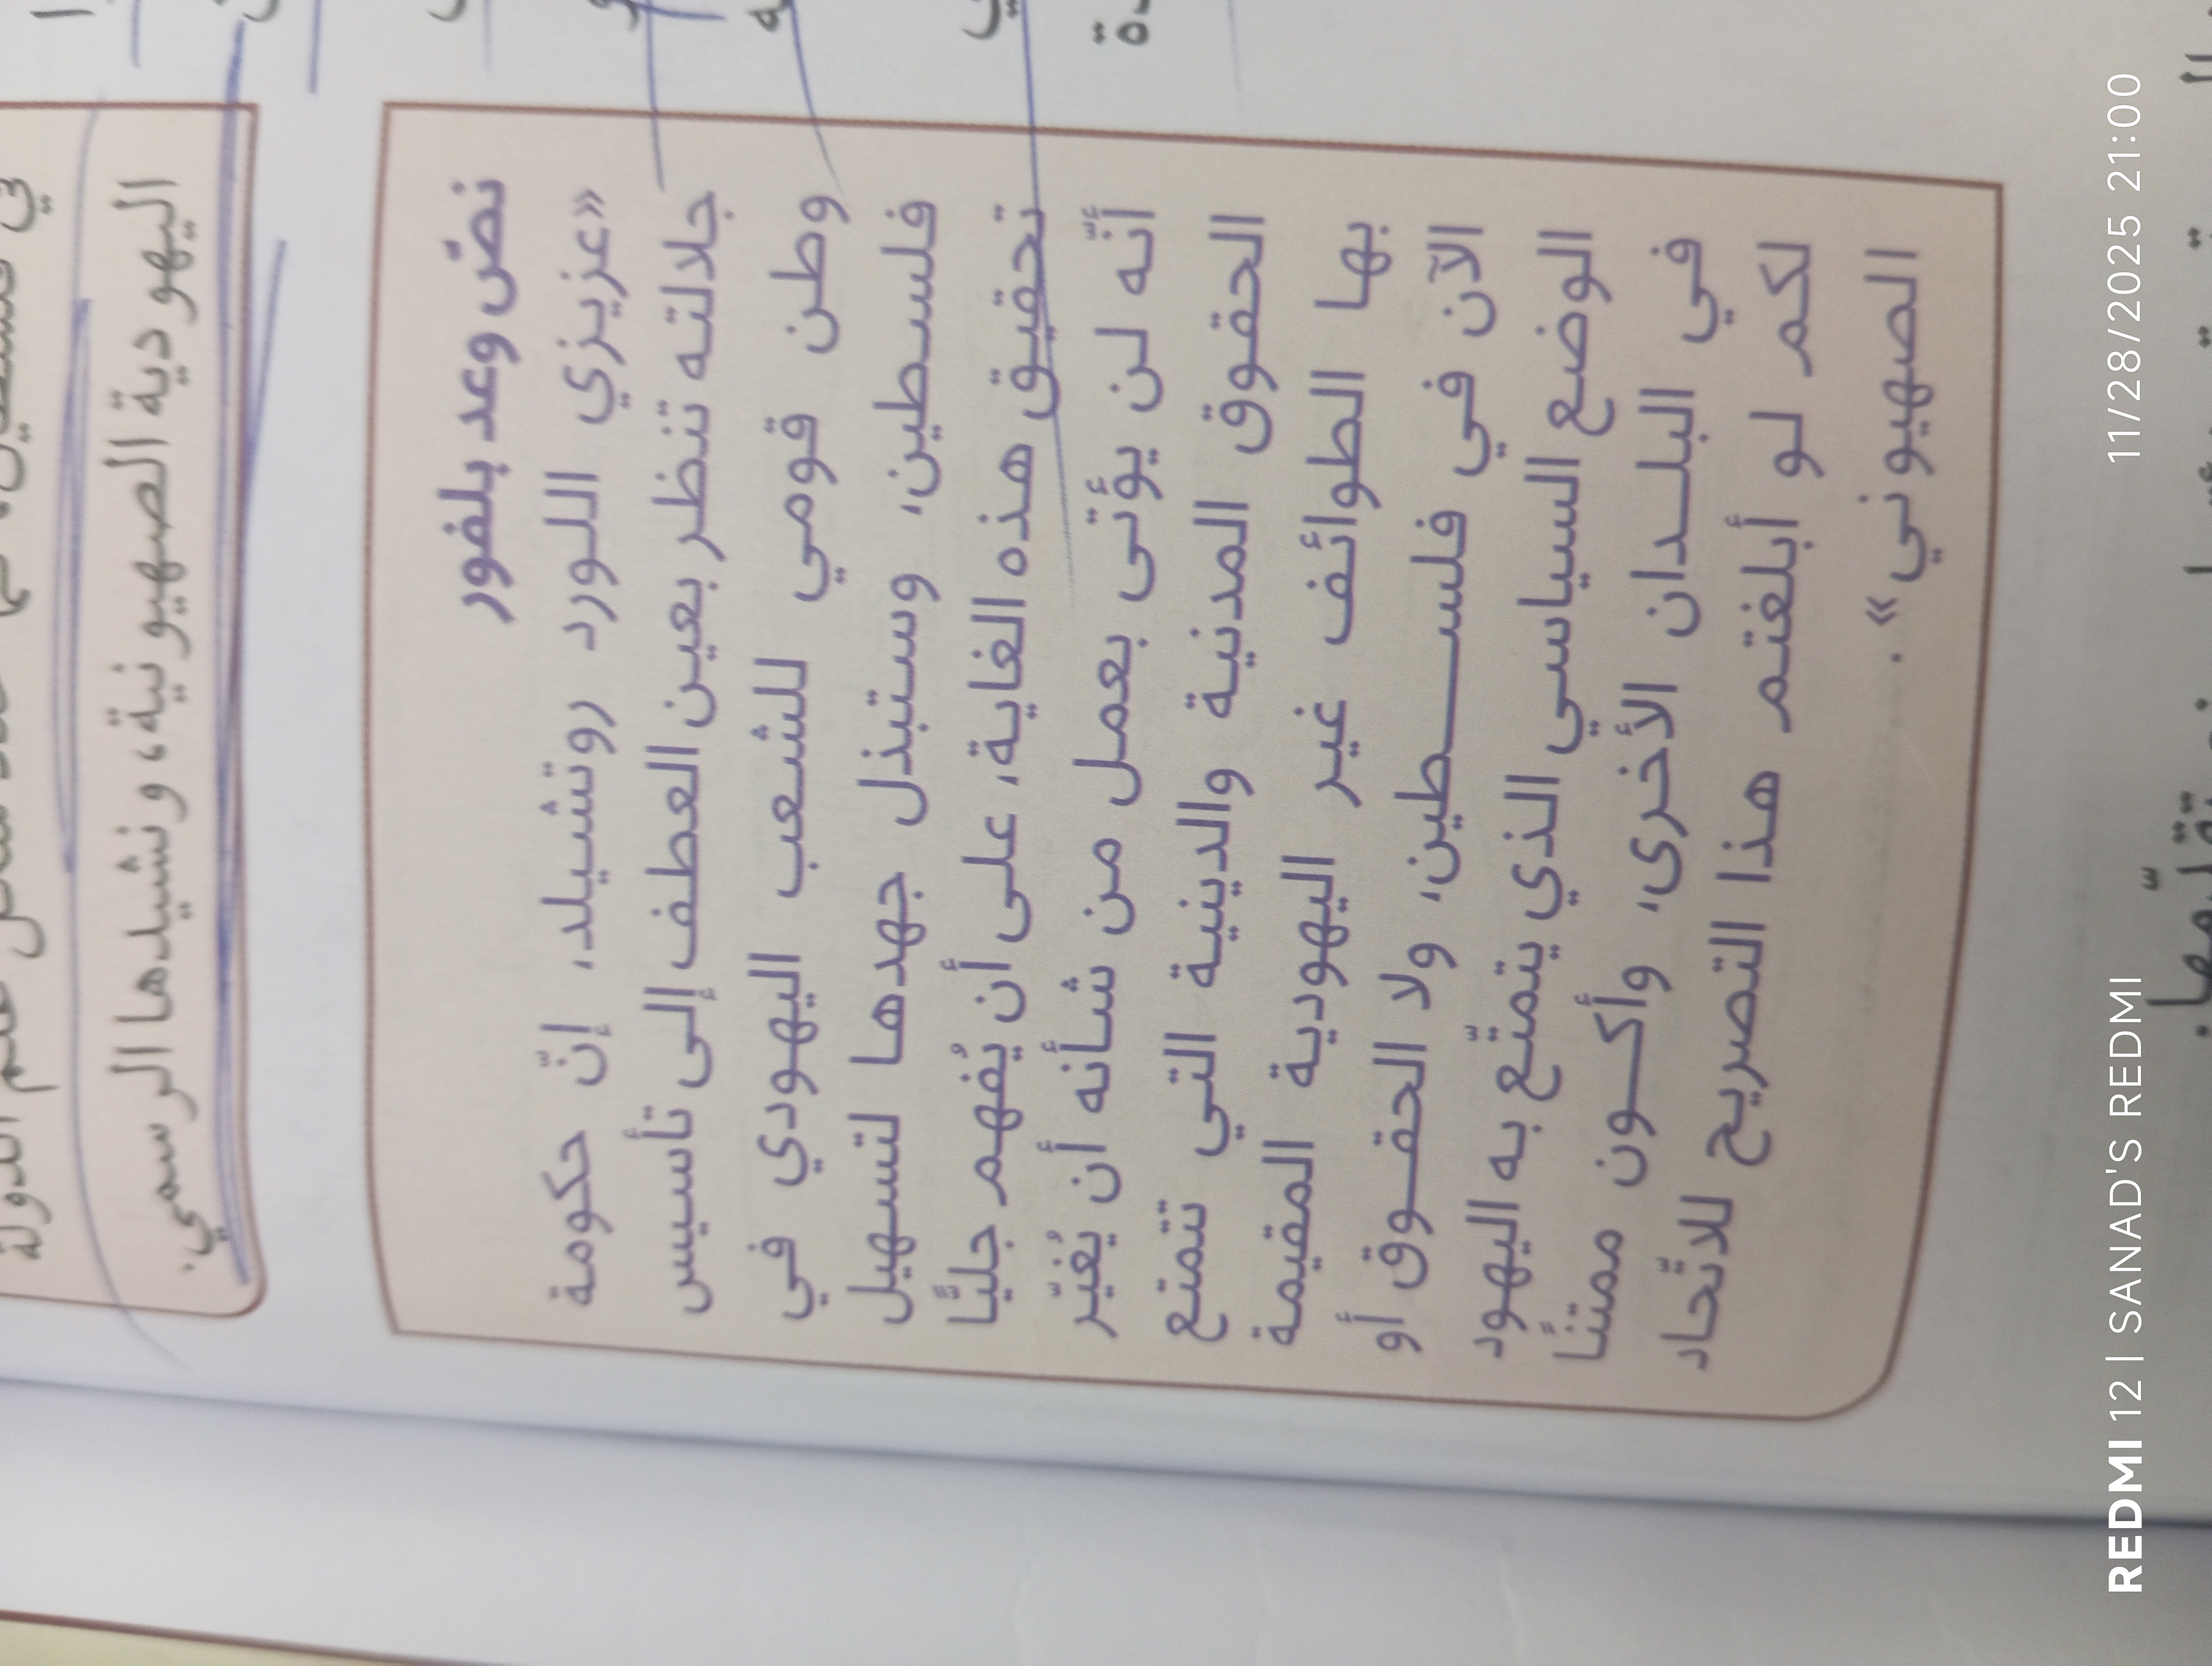 اليهودية الصهيونية، ونشيدها الرسمي.
نصّ وعد بلفور
«عزيزي اللورد روتشيلد، إنّ حكومة
جلالته تنظر بعين العطف إلى تأسيس
وطن قومي للشعب اليهودي في
فلسطين، وستبذل جهدها لتسهيل
تحقيق هذه الغاية، على أن يُفهم جليًّا
أنّه لن يؤتى بعمل من شأنه أن يُغيّر
الحقوق المدنية والدينية التي تتمتع
بها الطوائف غير اليهودية المقيمة
الآن في فلسطين، ولا الحقوق أو
الوضع السياسي الذي يتمتّع به اليهود
في البلدان الأخرى، وأكون ممتنًّا
لكم لو أبلغتم هذا التصريح للاتّحاد
الصهيوني».
REDMI 12 | SANAD'S REDMI 11/28/2025 21:00